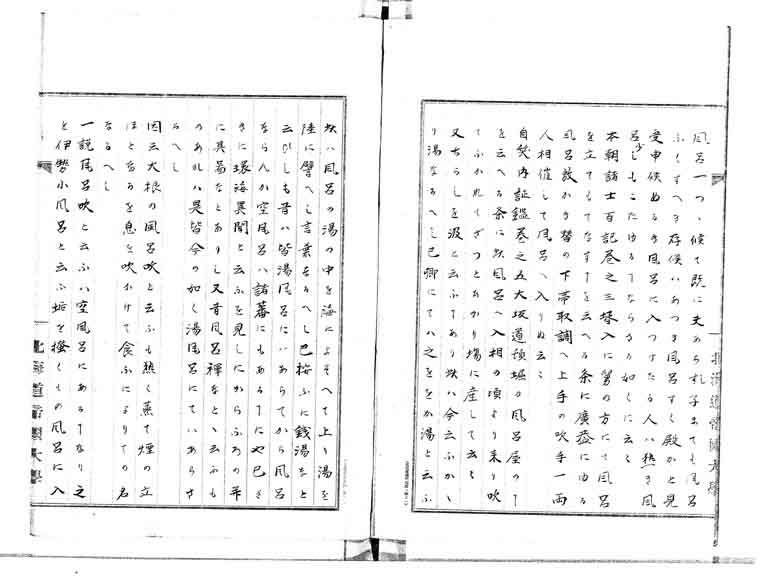 風呂一つゝ候て既に
ふくすへき存候いあつき風呂すく殿かと見
受申候ぬるき風呂に入つけたる人ハ熱き風
呂少しもこたゆるヿならさる如くに云々
本朝諸士百記巻之三聟入に舅の方にて風呂
を立てもてなすヿを云へる条に
風呂数かき替の下帯取調へ上手の吹手一両
人相催して風呂ヘ入りぬ云々
自笑内証鑑巻之五大坂道頓堀の風呂屋のヿ
を云へる条に此風呂へ入相の頃より来り吹
てふかれてざつとあかり場に座して云々
又ちらしを汲と云ふヿあり此ハ今云ふかゝ
り湯なるへし巴郷にてハ之ををか湯と云ふ
此ハ風呂の湯の中を海によそへて上り湯を
陸に譬へし言葉なるへし巴按ふに銭湯なと
云ひしも昔ハ皆湯風呂にハあらてから風呂
ならんか空風呂ハ諸蕃にもあるヿにや巴さ
きに環海異聞と云ふを見しにからふろの
に具なとありし又昔風呂褌なとゝ云ふも
のあれハ異皆今の如く湯風呂にてハあらさ
るへし
因云大根の風呂吹と云ふも熱く蒸て煙の立
ほとなるを息を吹かけて食ふによりての名
なるへし
一説風呂吹と云ふハ空風呂にあるヿなり之
を伊勢小風呂と云ふ垢を掻くもの風呂に入
北海道帝國大學
北海道帝國大學